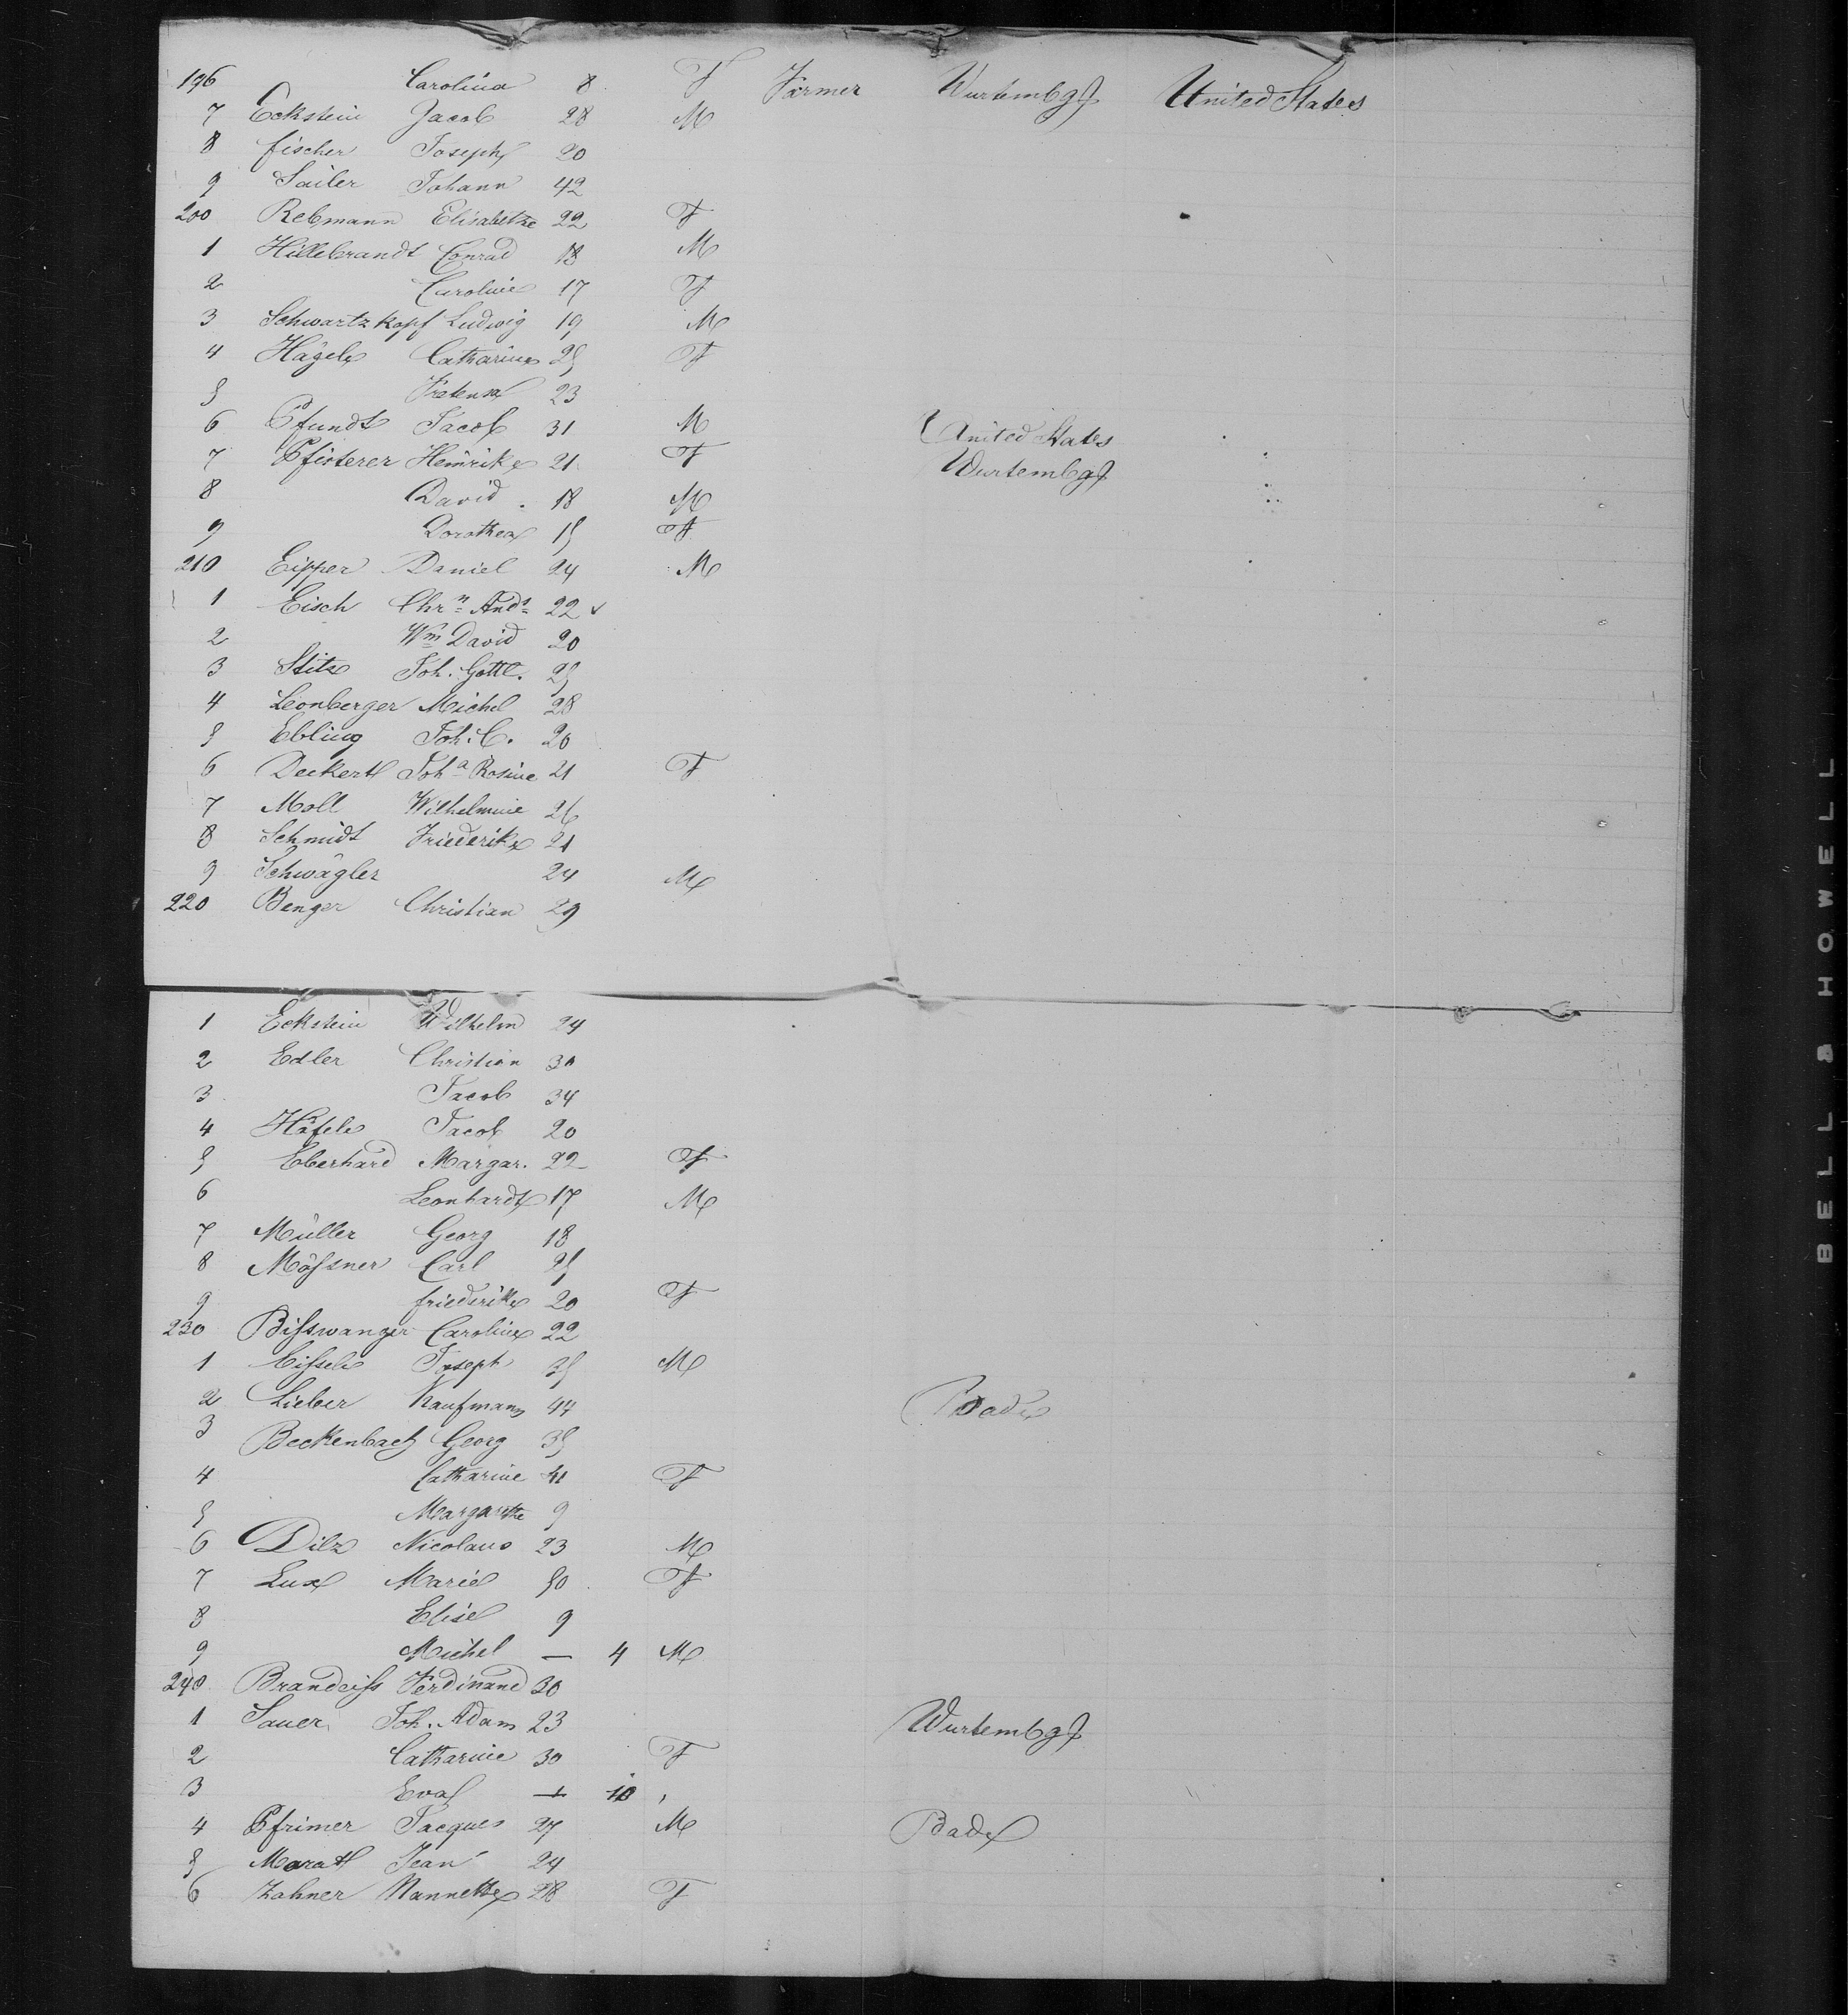 196 Carolina 8 F Farmer Wurtembg United States
7 Eckstein Jacob 28 M
8 Fischer Joseph 20
9 Sailer Johann 42
200 Rebmann Elisabethe 22 F
1 Hillebrandt Conrad 18 M
2 Caroline 17 F
3 Schwartzkopf Ludwig 19 M
4 Hägele Catharine 25 F
5 23
6 Pfundt Jacob 31 M United States
7 Pfisterer Heinrike 21 F Wurtembg
8 David 18 M
9 Dorothea 15 F
210 Eipper Daniel 24 M
1 Eisch Chrn Ands 22
2 Wm David 20
3 Stitz Joh. Gottl. 25
4 Leonberger Michel 28
5 Ebling Joh. C. 20
6 Deckert Joha Rosine 21 F
7 Moll Wilhelmine 26
8 Schmidt Friederike 21
9 Schwägler 24 M
220 Benger Christian 29
1 Eckstein Wilhelm 24
2 Edler Christian 30
3 Jacob 34
4 Häfele Jacob 20
5 Eberhard Margar. 22 F
6 Leonhardt 17 M
7 Müller Georg 18
8 Mössner Carl 25
9 Friederike 20 F
230 Bisswanger Caroline 22
1 Eissele Joseph 35 M
2 Lieber Kaufmann 44 Bade
3 Beckenbach Georg 35
4 Catharine 41 F
5 Margarethe 9
6 Dilz Nicolaus 23 M
7 Lux Marie 50 F
8 Elise 9
9 Michel — 4 M
240 Brandeiss Ferdinand 30
1 Sauer Joh. Adam 23 Wurtembg
2 Catharine 30 F
3 Eva — 10
4 Pfrimer Jacques 27 M Bade
5 Marat Jean 24
6 Zahner Nannette 28 F
BELL & HOWELL